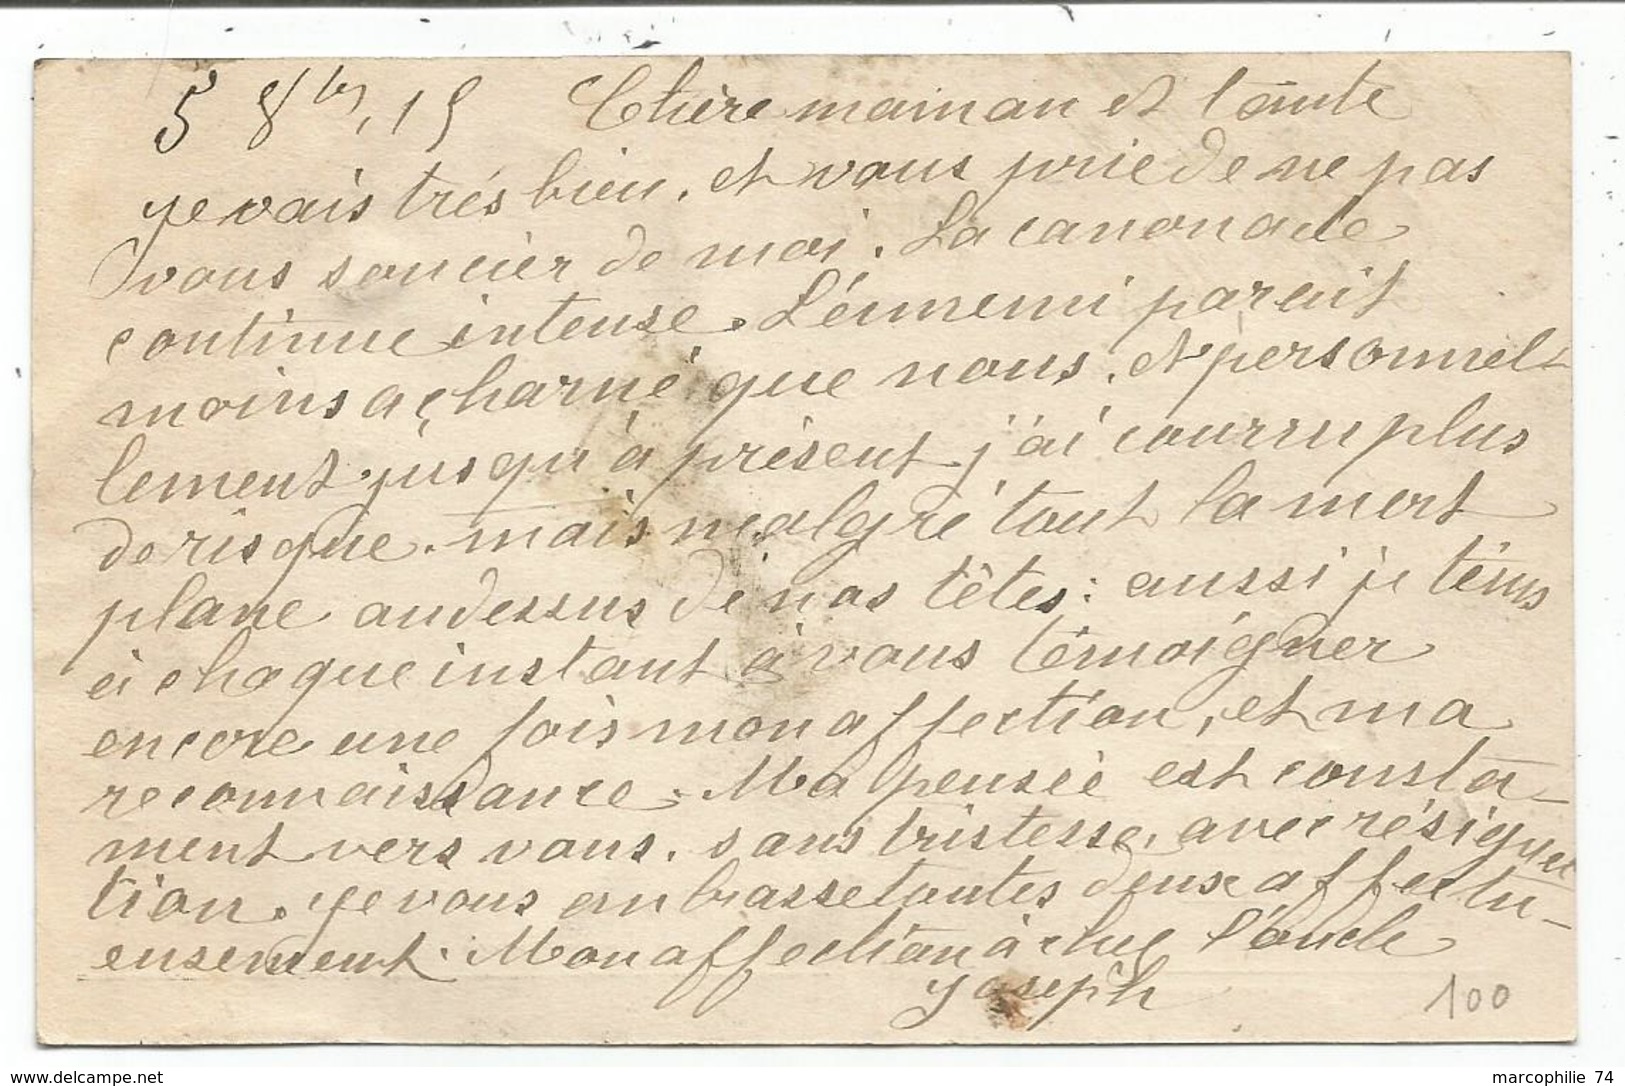 5 8bre, 15 Chère maman et tante
je vais très bien, et vous prie de ne pas
vous soucier de moi. La canonade
continue intense. L'énnemi parait
moins acharné que nous, et personnel-
lement jusqu'à présent j'ai courru plus
de risque. mais malgré tout la mort
plane au dessus de nos têtes: aussi je tiens
à chaque instant à vous témoigner
encore une fois mon affection, et ma
reconnaissance. Ma pensée est consta-
ment vers vous. sans tristesse, avec résigna
tion. je vous embrasse toutes deux affectu-
eusement. Mon affection à l'oncle
Joseph
100
www.delcampe.net
marcophilie 74